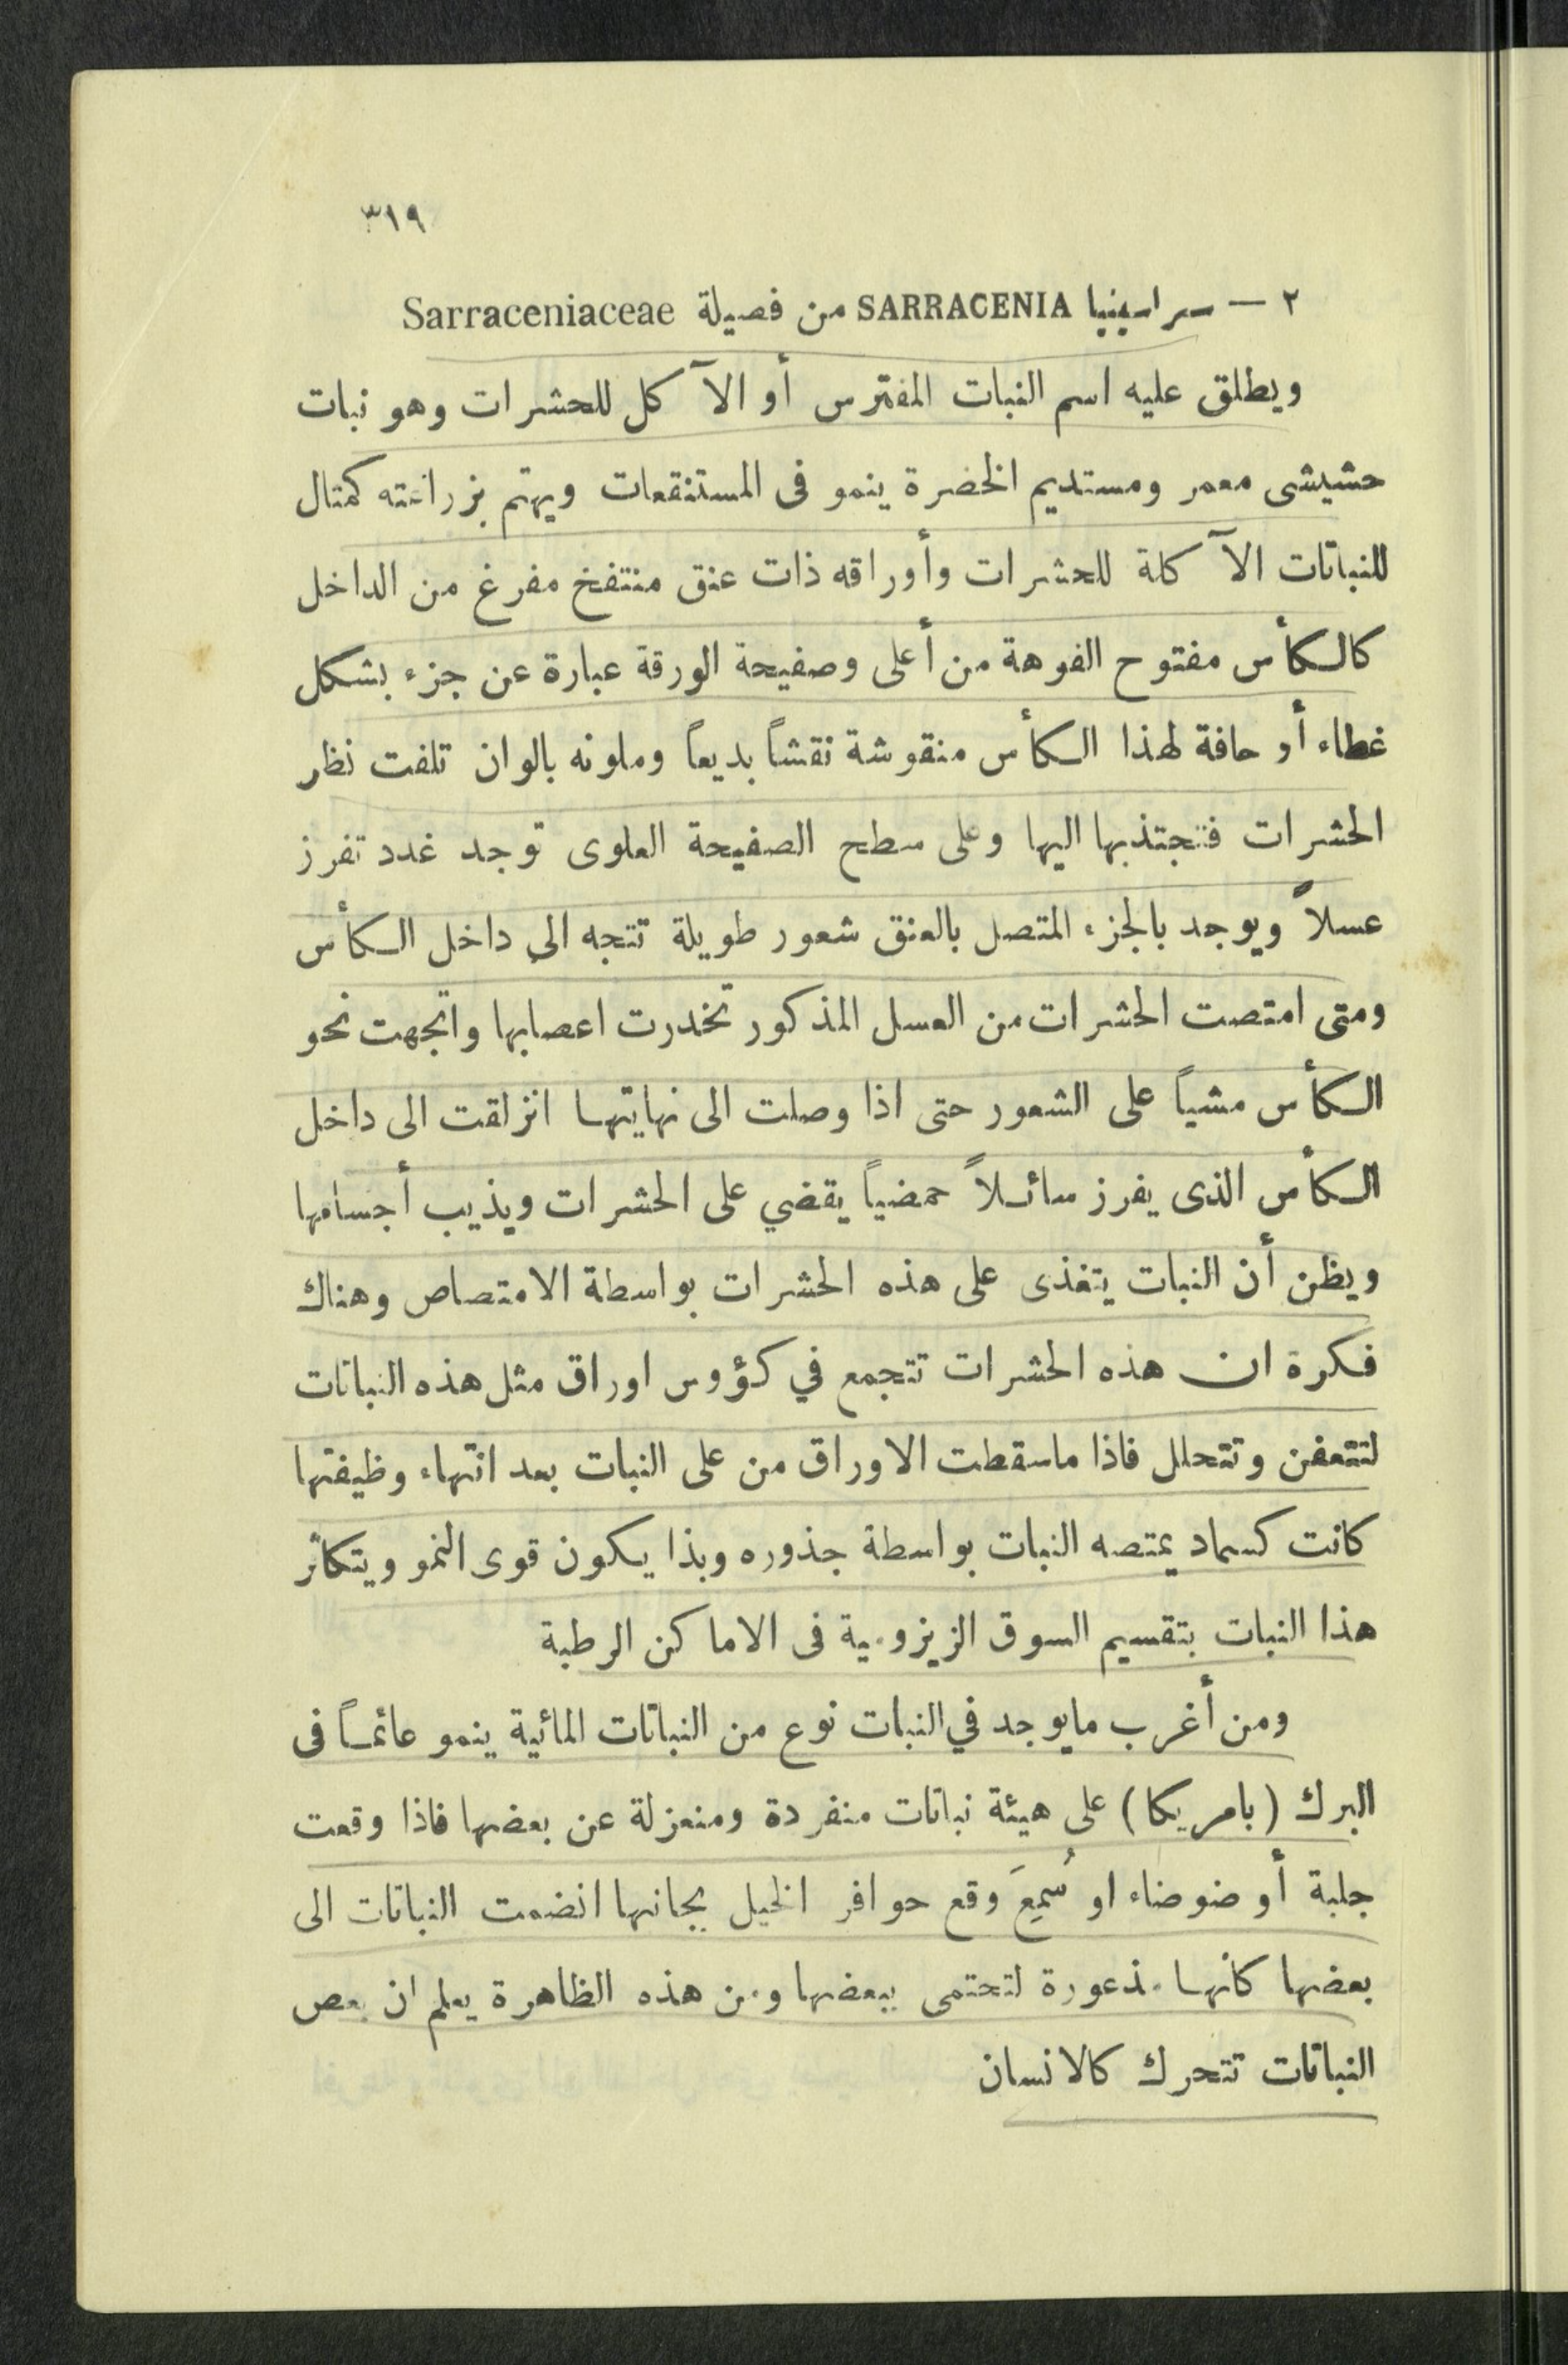 ٣١٩
٢ — سراسينيا SARRACENIA من فصيلة Sarraceniaceae
ويطلق عليه اسم النبات المفترس أو الآكل للحشرات وهو نبات
حشيشى معمر ومستديم الخضرة ينمو فى المستنقعات ويهتم بزراعته كمثال
للنباتات الآكلة للحشرات وأوراقه ذات عنق منتفخ مفرغ من الداخل
كالكأس مفتوح الفوهة من أعلى وصفيحة الورقة عبارة عن جزء بشكل
غطاء أو حافة لهذا الكأس منقوشة نقشاً بديعاً وملونه بالوان تلفت نظر
الحشرات فتجتذبها اليها وعلى سطح الصفيحة العلوى توجد غدد تفرز
عسلاً ويوجد بالجزء المتصل بالعنق شعور طويلة تتجه الى داخل الكأس
ومتى امتصت الحشرات من العسل المذكور تخدرت اعصابها واتجهت نحو
الكأس مشياً على الشعور حتى اذا وصلت الى نهايتها انزلقت الى داخل
الكأس الذى يفرز سائلاً حمضياً يقضي على الحشرات ويذيب أجسامها
ويظن أن النبات يتغذى على هذه الحشرات بواسطة الامتصاص وهناك
فكرة ان هذه الحشرات تتجمع في كؤوس اوراق مثل هذه النباتات
لتتعفن وتتحلل فاذا ماسقطت الاوراق من على النبات بعد انتهاء وظيفتها
كانت كسماد يمتصه النبات بواسطة جذوره وبذا يكون قوى النمو ويتكاثر
هذا النبات بتقسيم السوق الريزومية فى الاماكن الرطبة
ومن أغرب مايوجد في النبات نوع من النباتات المائية ينمو عائماً فى
البرك (بامريكا) على هيئة نباتات منفردة ومنعزلة عن بعضها فاذا وقعت
جلبة أو ضوضاء او سُمِعَ وقع حوافر الخيل بجانبها انضمت النباتات الى
بعضها كانها مذعورة لتحتمى ببعضها ومن هذه الظاهرة يعلم ان بعض
النباتات تتحرك كالانسان